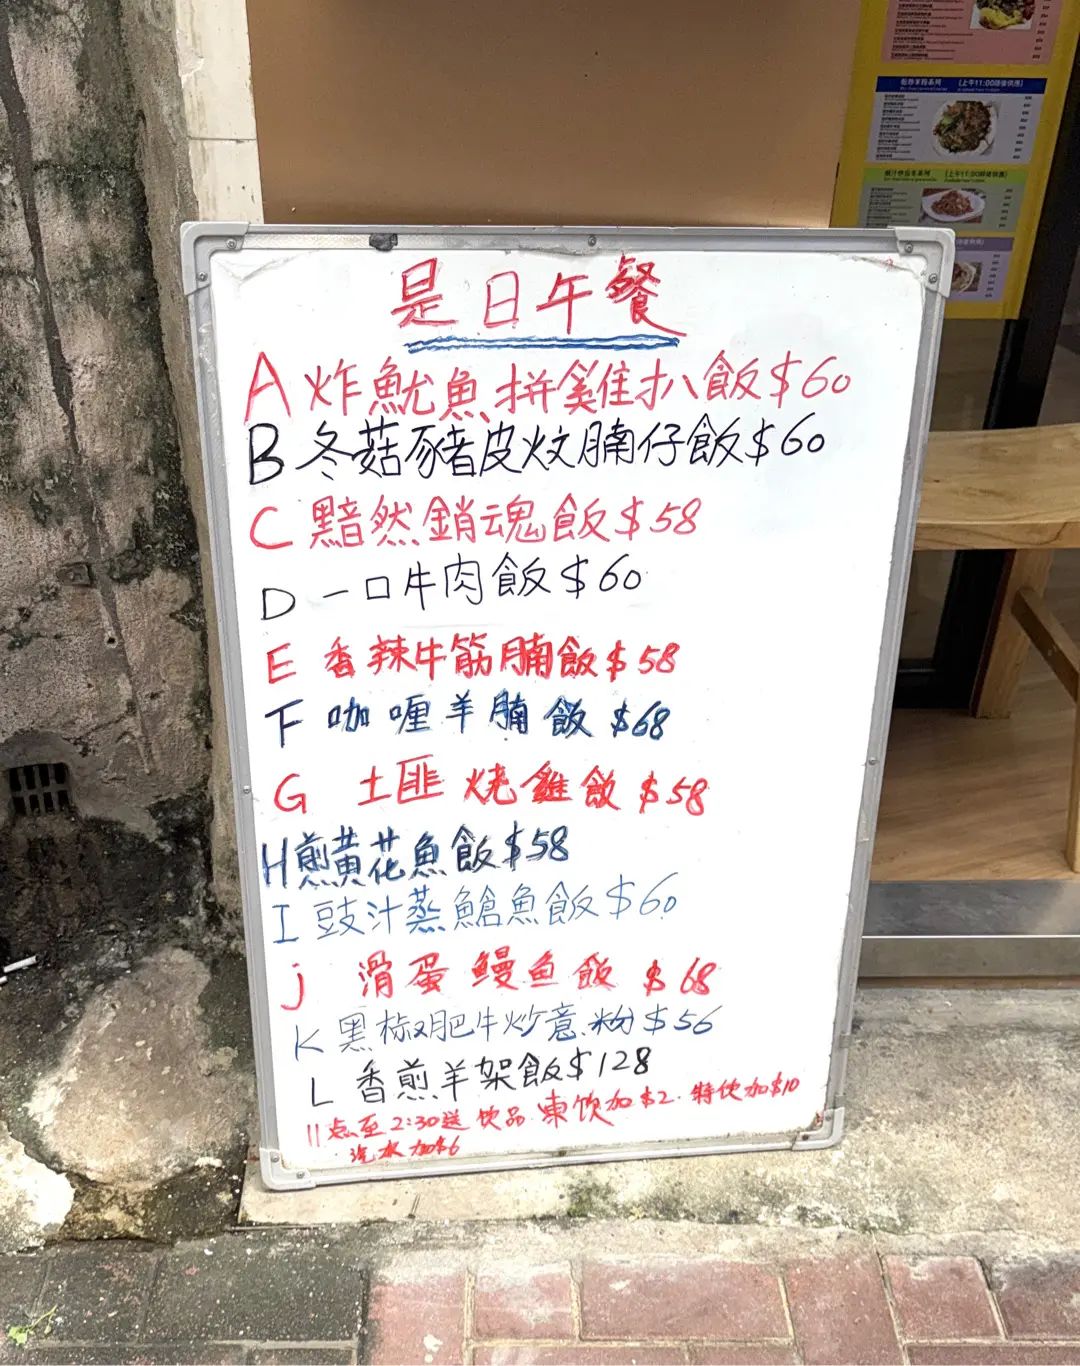 是日午餐
A 炸魷魚拼雞扒飯$60
B 冬菇豬皮炆腩仔飯$60
C 黯然銷魂飯$58
D 一口牛肉飯$60
E 香辣牛筋腩飯$58
F 咖喱羊腩飯 $68
G 土匪燒雞飯 $58
H 煎黄花魚飯$58
I 豉汁蒸鯧魚飯$60
j 滑蛋鳗鱼飯 $68
K 黑椒肥牛炒意粉$56
L 香煎羊架飯$128
11点至2:30送饮品 凍饮加$2. 特饮加$10
汽水加$6
(上午11:00時後供應)